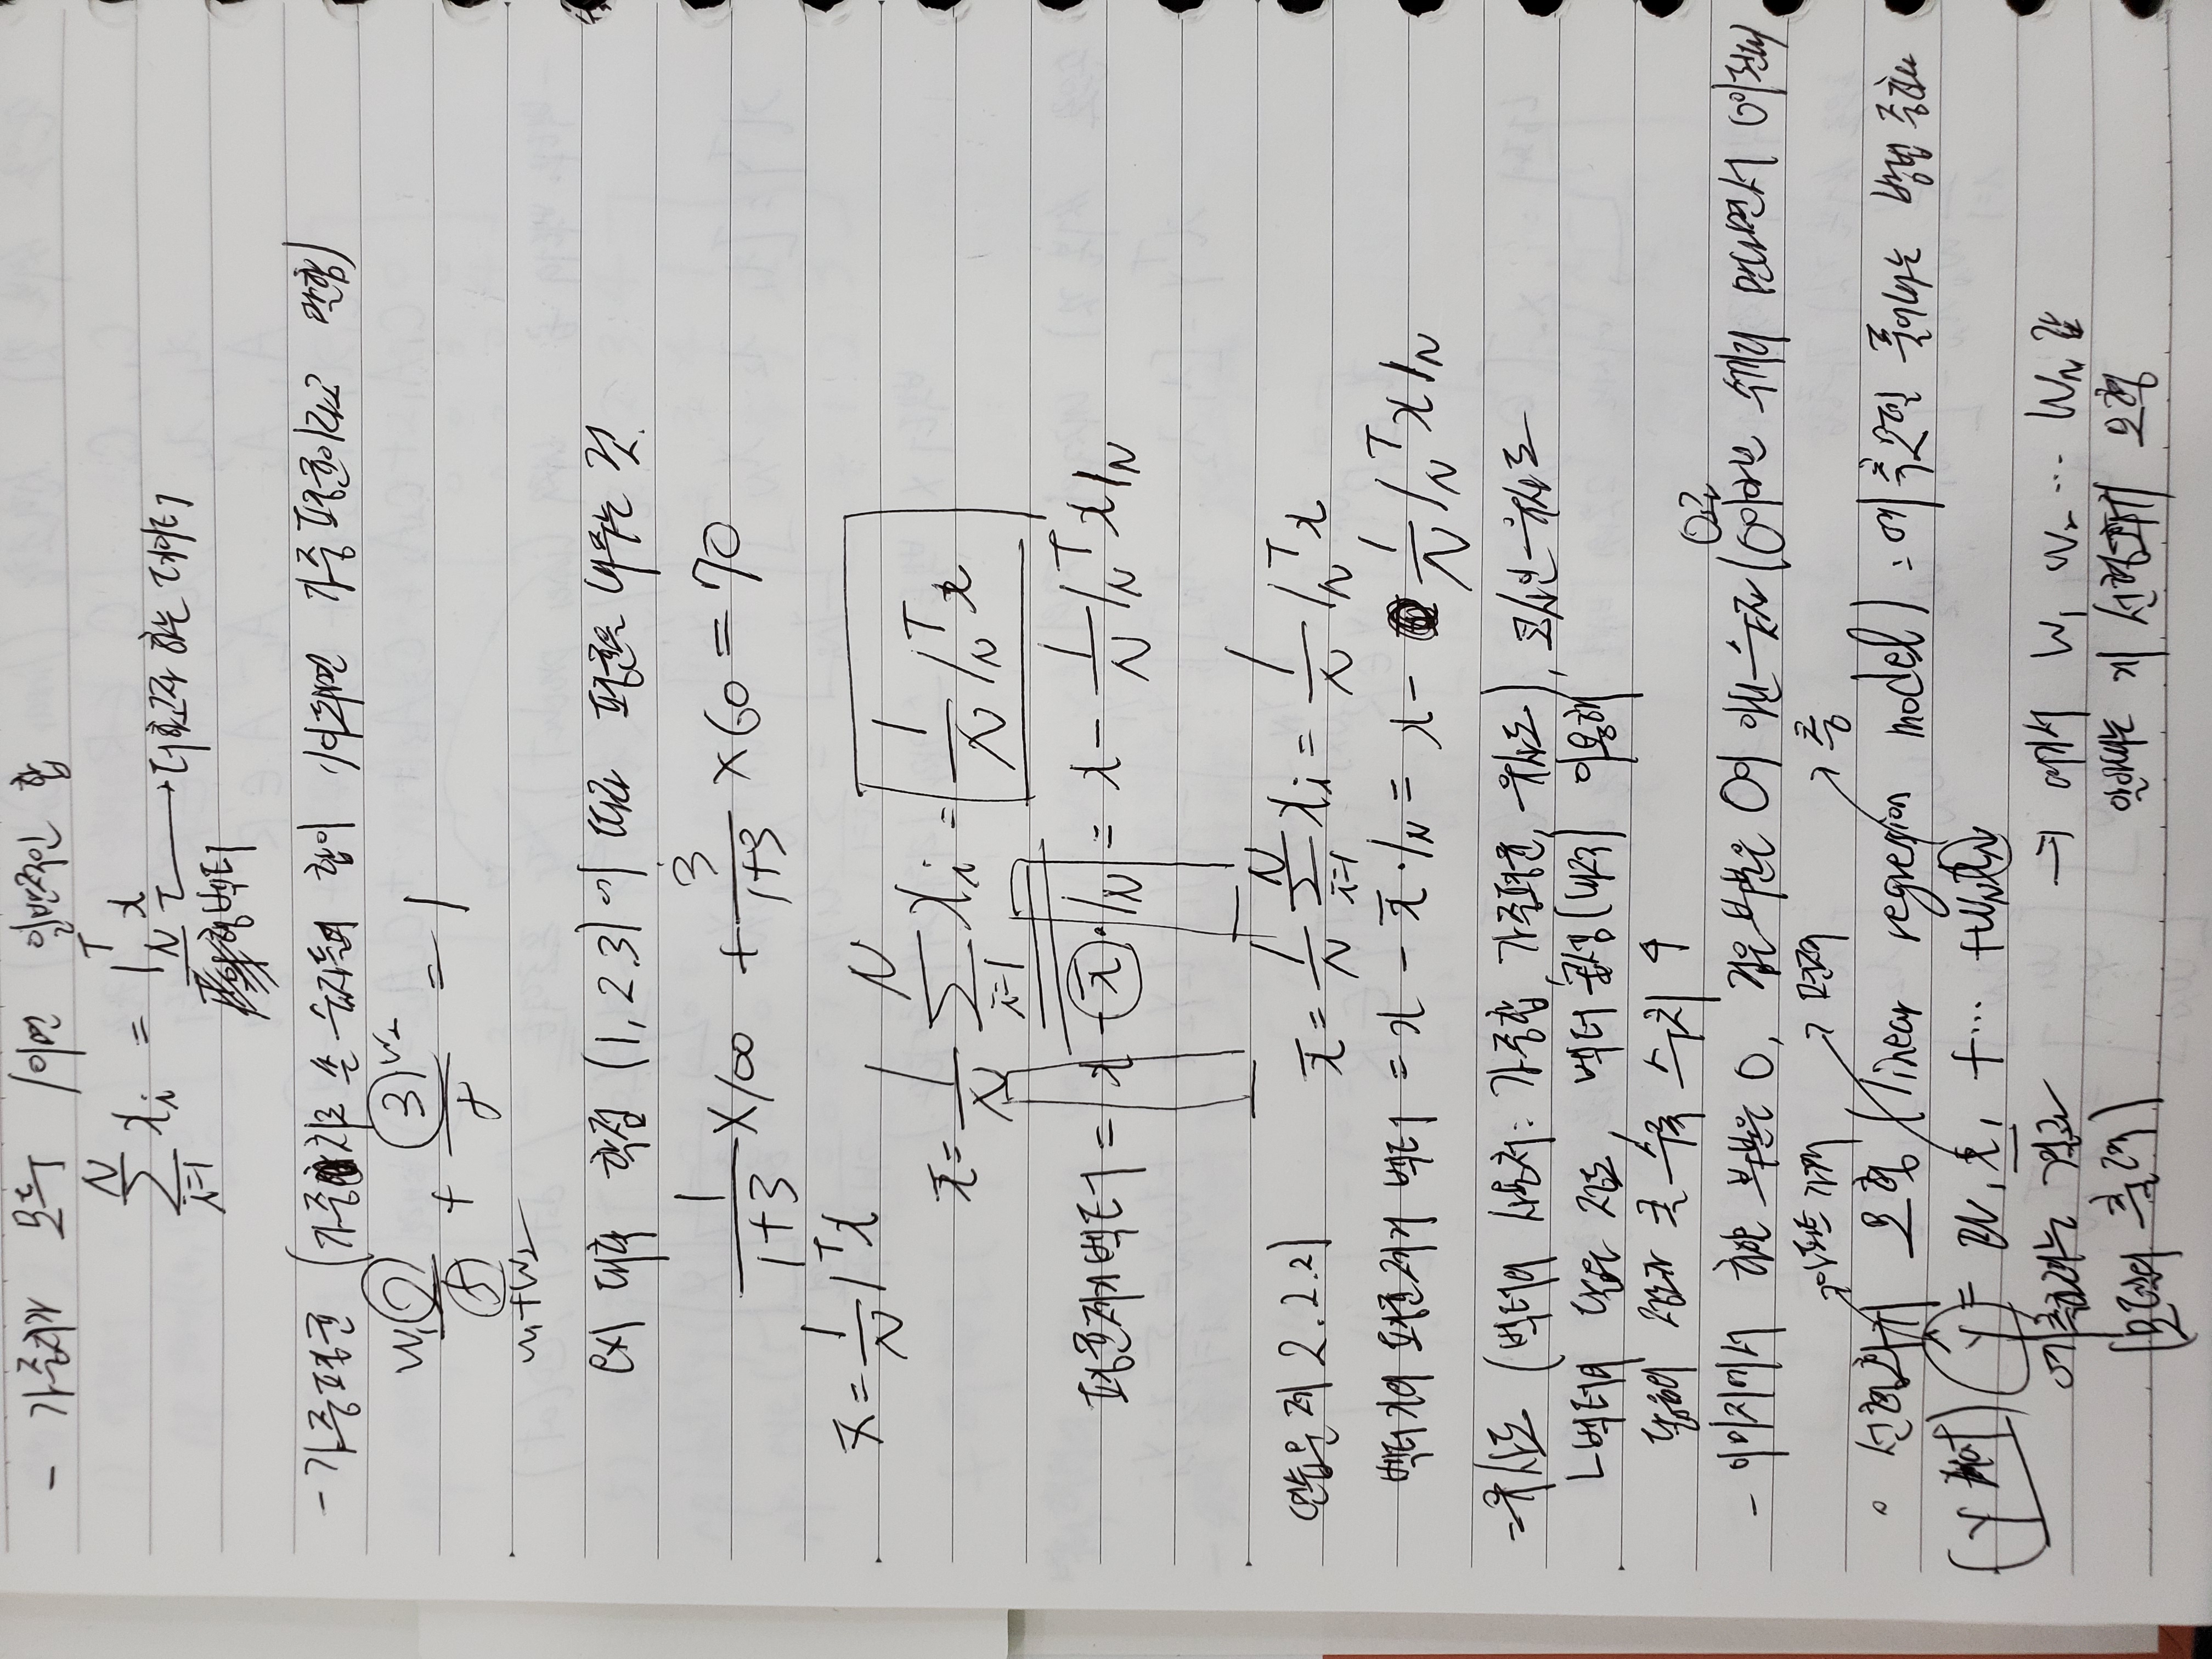 - 가중치가 모두 1이면 일반적인 합
N
∑ xᵢ = 1_N^T x → 더하고자 하는 데이터
i=1
행벡터
- 가중평균 (가중치로 쓴 숫자들의 합이 1이 되면 가중평균이라고 말함)
w₁ 2 3 w₂
― + ― = 1
5
w₁+w₂
ex) 대학 학점 (1, 2, 3)에 따라 평균을 내주는 것.
1/(1+3) × 100 + 3/(1+3) × 60 = 70
x̄ = 1/N 1^T x
x̄ = 1/N ∑_{i=1}^N xᵢ = 1/N 1_N^T x
평균제거 벡터 = x - x̄ · 1_N = x - 1/N 1_N^T x 1_N
연습문제 2.2.2) x̄ = 1/N ∑_{i=1}^N xᵢ = 1/N 1_N^T x
벡터 x의 평균제거 벡터 = x - x̄ · 1_N = x - 1/N 1_N^T x 1_N
- 유사도 (벡터의 사용처: 가중합, 가중평균, 유사도), 코사인 유사도
ㄴ벡터의 닮은 정도, 벡터 곱셈(내적) 이용해
닮음의 정도가 클 수록 수치 ↑
0으로
- 이미지에서 하얀 부분은 0, 검은 부분은 0이 아닌 숫자 (0이 아닌 수끼리 만나면서
→아파트 가격 → 면적 → 층
◦ 선형회귀 모형 (linear regression model) : 예측모델 풀어내는 방법 중 하나
(y hat) ŷ = w₁x₁ + ··· + w_N x_N
예측하려는 결과 ⇒ 여기서 w₁ w₂ ··· w_N 값
(모델의 출력) 알아내는 게 선형회귀 모형